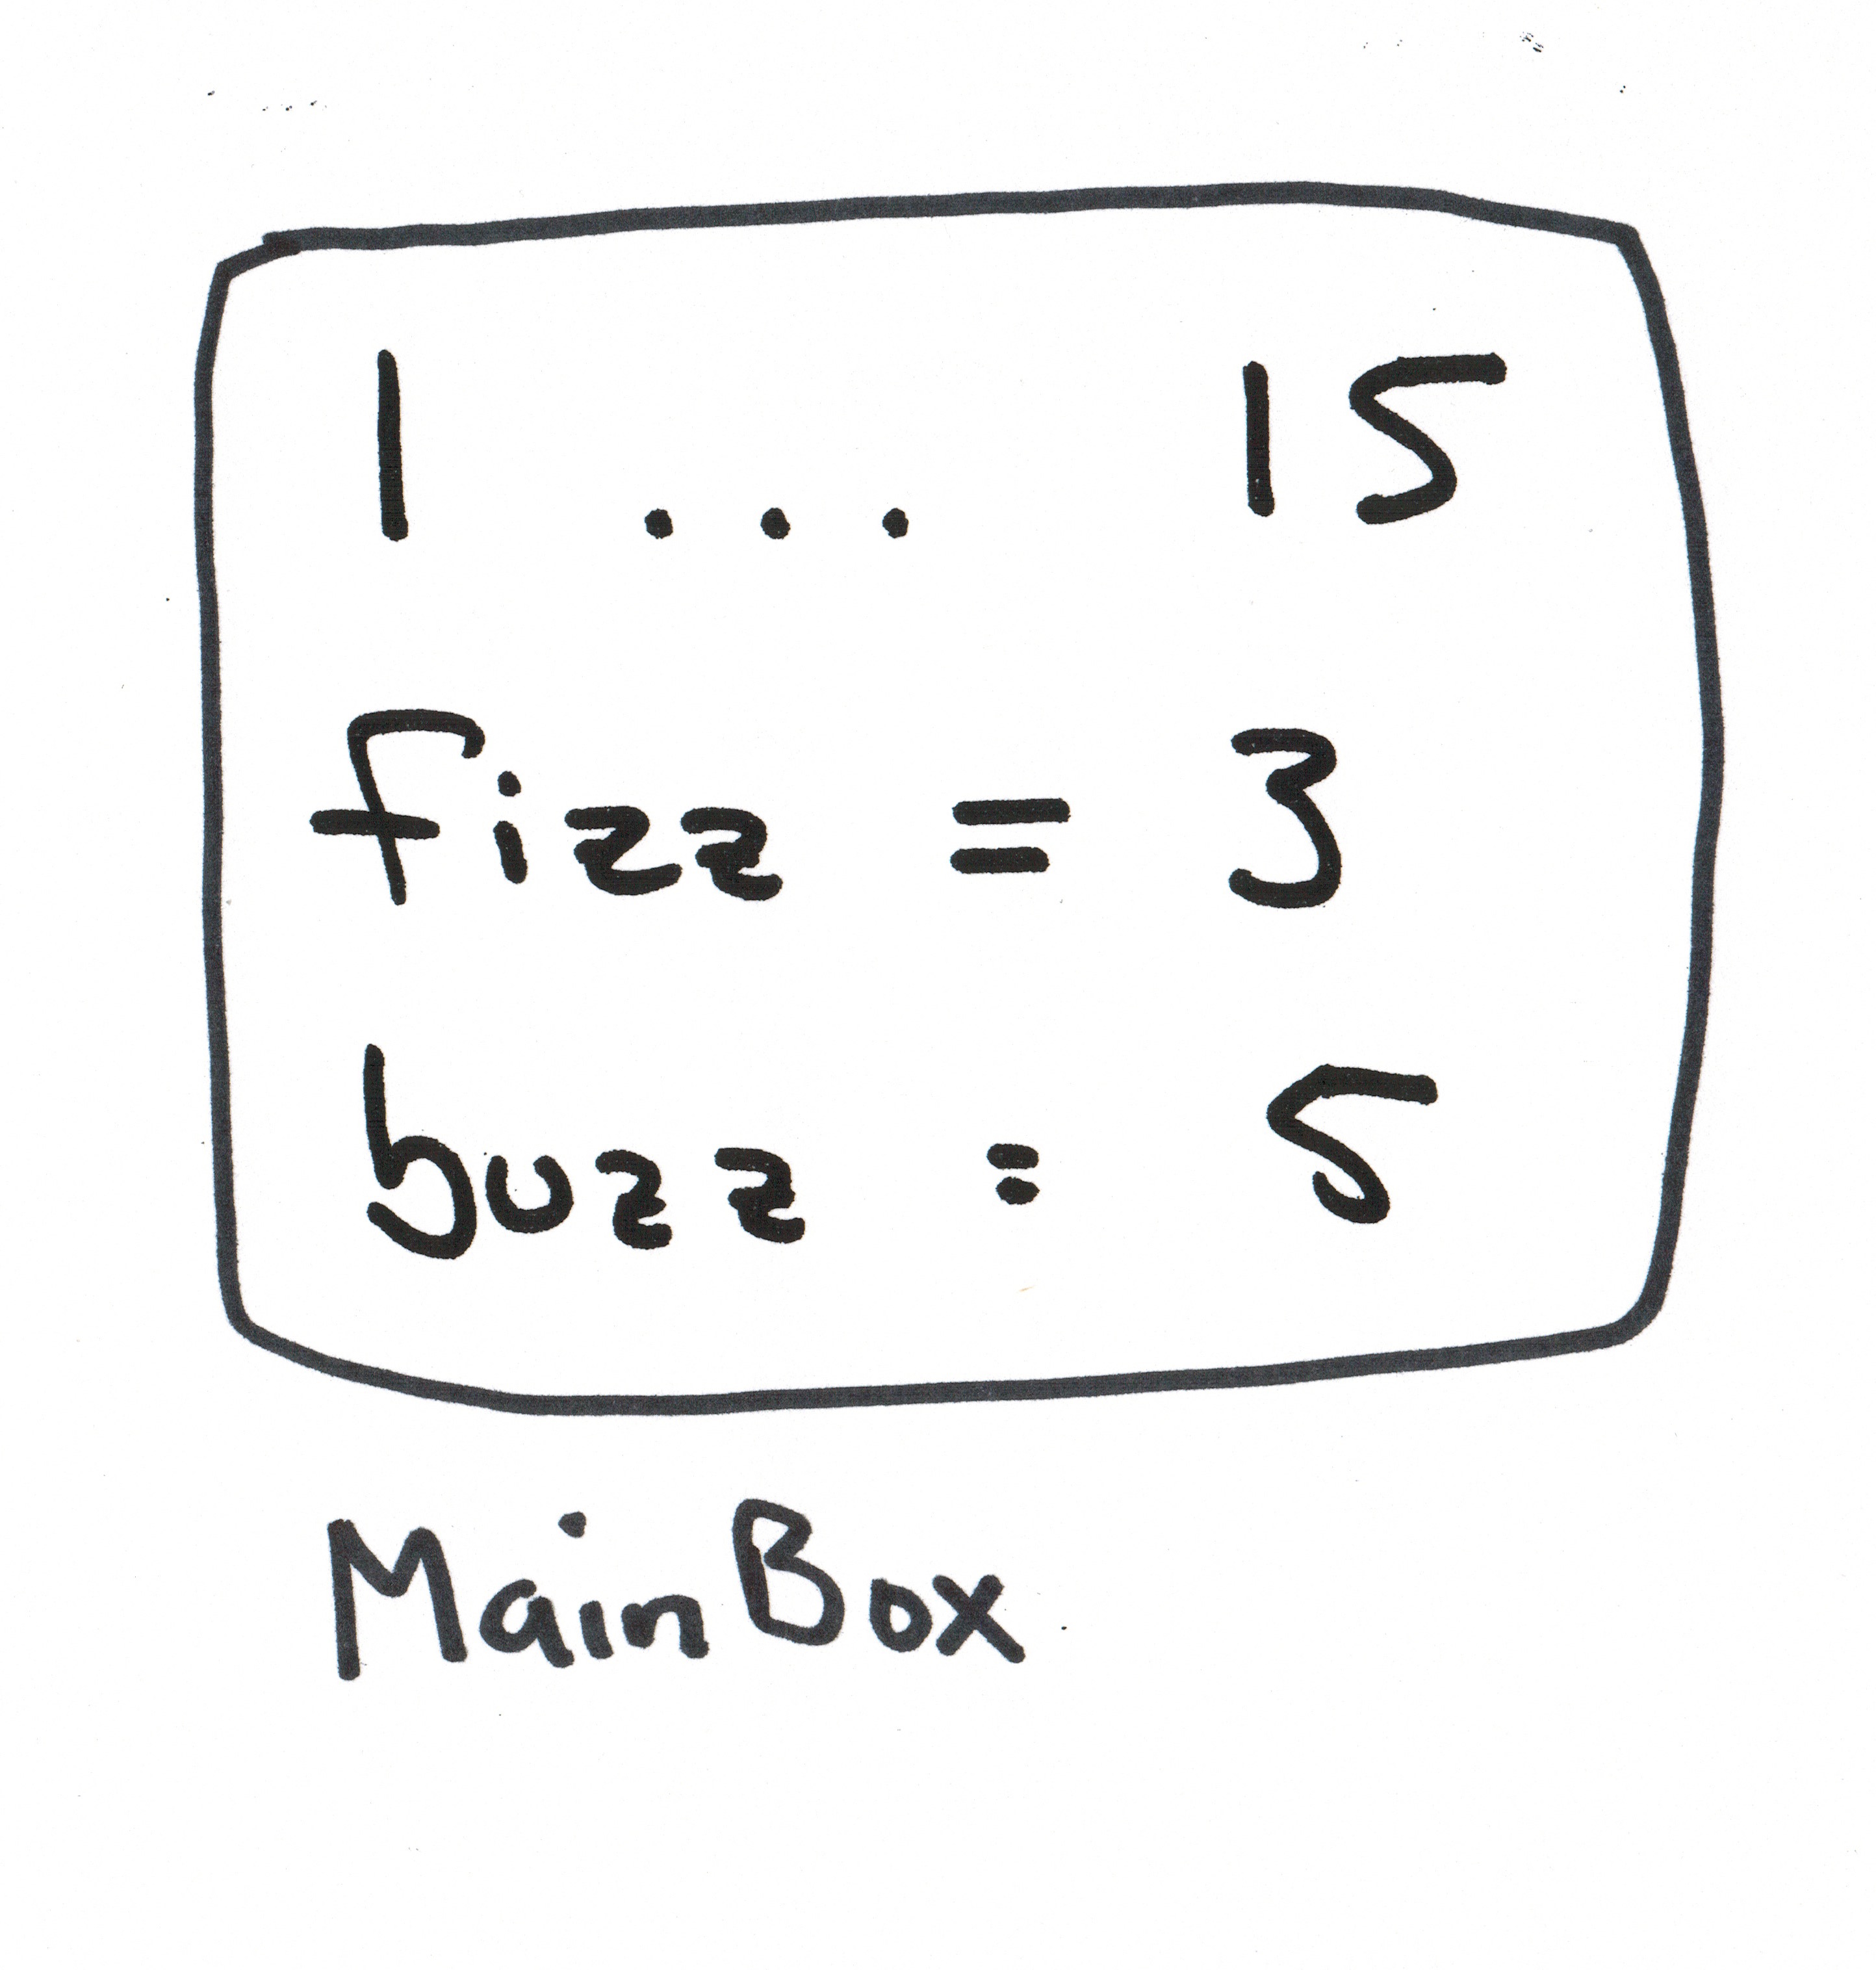 1 ... 15
fizz = 3
buzz = 5
MainBox